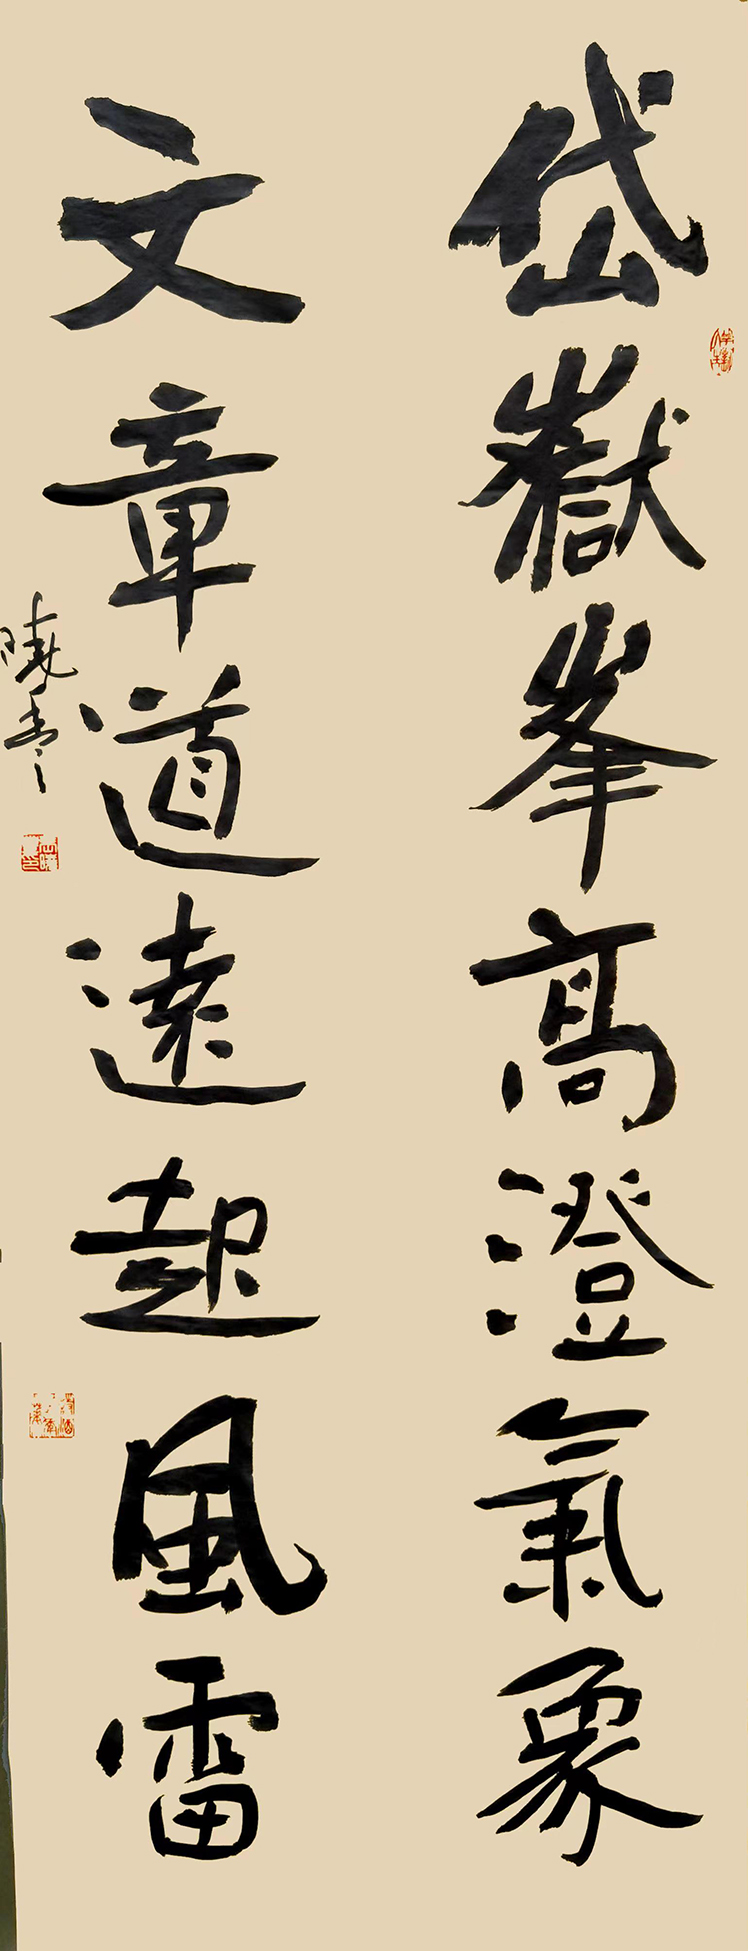 岱嶽峯高澄氣象
文章道遠起風雷